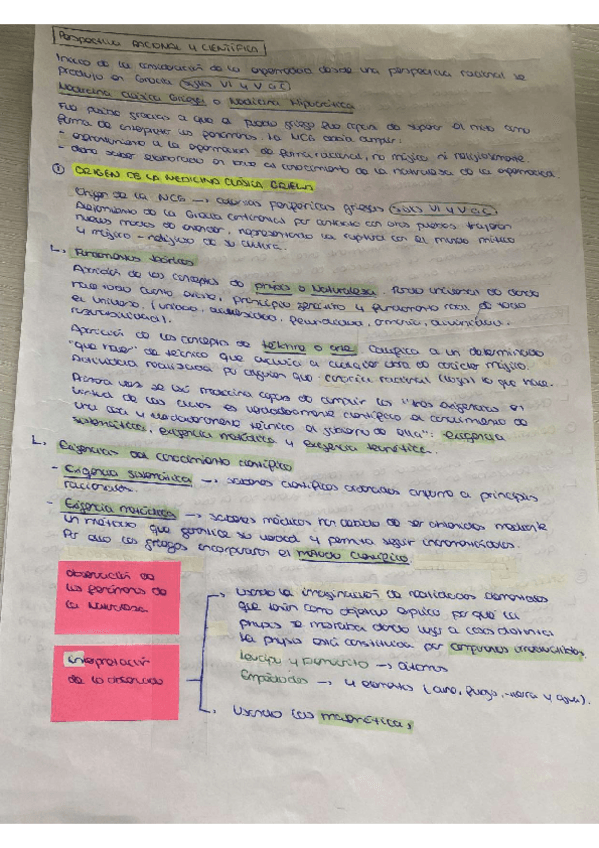 PERSPECTIVA RACIONAL Y CIENTÍFICA
Inicio de la consideración de la enfermedad desde una perspectiva racional se
produjo en Grecia (siglos VI y V a.C)
Medicina Clásica Griega o Medicina Hipocrática
Fue posible gracias a que el pueblo griego fue capaz de superar el mito como
forma de interpretar los fenómenos. La MCG debía cumplir:
- enfrentamiento a la enfermedad de forma racional, no mágico ni religiosamente.
- debía saber elaborado en torno al conocimiento de la naturaleza de la enfermedad.
① ORIGEN DE LA MEDICINA CLÁSICA GRIEGA
Origen de la MCG → colonias periféricas griegas (siglos VI y V a.C)
Alejamiento de la Grecia continental por contacto con otros pueblos trajeron
nuevos modos de entender, representando la ruptura con el mundo mítico
y mágico - religioso de su cultura.
L. Fundamentos teóricos
Aparición de los conceptos de physis o Naturaleza. Fondo universal de donde
nace todo cuanto existe, principio genético y fundamento real de todo
el universo. (unidad, diversidad, fecundidad, armonía, divinidad,
razonabilidad).
Aparición de los conceptos de tekhne o arte. Califica a un determinado
"que hacer" de técnico que excluía a cualquier obra de carácter mágico.
Actividad realizada por alguien que conocía racional (logos) lo que hace.
Ahora ves se la medicina capaz de cumplir las "tres exigencias en
virtud de las cuales es verdaderamente científico el conocimiento de
una cosa y verdaderamente técnico el gobierno de ella": exigencia
sistemática, exigencia metódica y exigencia teorética.
L. Exigencias del conocimiento científico
- Exigencia sistemática → saberes científicos ordenados conforme a principios
racionales.
- Exigencia metódica → saberes médicos han debido de ser obtenidos mediante
un método que garantice su verdad y permita seguir incrementándolos.
Por ello los griegos incorporaron el método científico
observación de
los fenómenos de
la Naturaleza
interpretación
de lo observado
Usando la imaginación de realidades elementales
que tenían como objetivo explicar por qué la
physis se mostraba dando lugar a cosas distintas
La physis está constituida por compuestos irreductibles.
Leucipo y Demócrito → átomos
Empédocles → 4 elementos (aire, fuego, tierra y agua).
Usando las matemáticas;